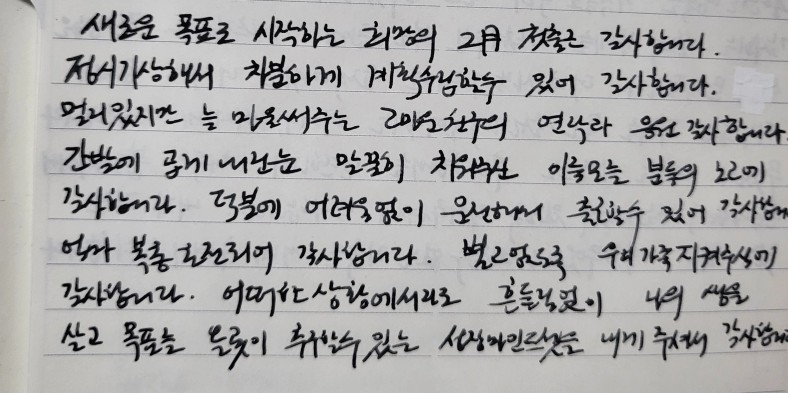 새로운 목표로 시작하는 희망의 2月 첫출근 감사합니다.
정시기상해서 차분하게 계획수립할수 있어 감사합니다.
멀리있지만 늘 마음써주는 고마운친구의 연락과 응원 감사합니다.
간밤에 곱게 내린눈 말끔히 치워주신 이름모를 분들의 노고에
감사합니다. 덕분에 어려움없이 운전해서 출근할수 있어 감사합니
엄마 복통 호전되어 감사합니다. 별고없도록 우리가족지켜주심에
감사합니다. 어떠한 상황에서라도 흔들림없이 나의 쌈을
살고 목표를 올곧이 추구할수 있는 성장마인드셋을 내게 주셔서 감사합니